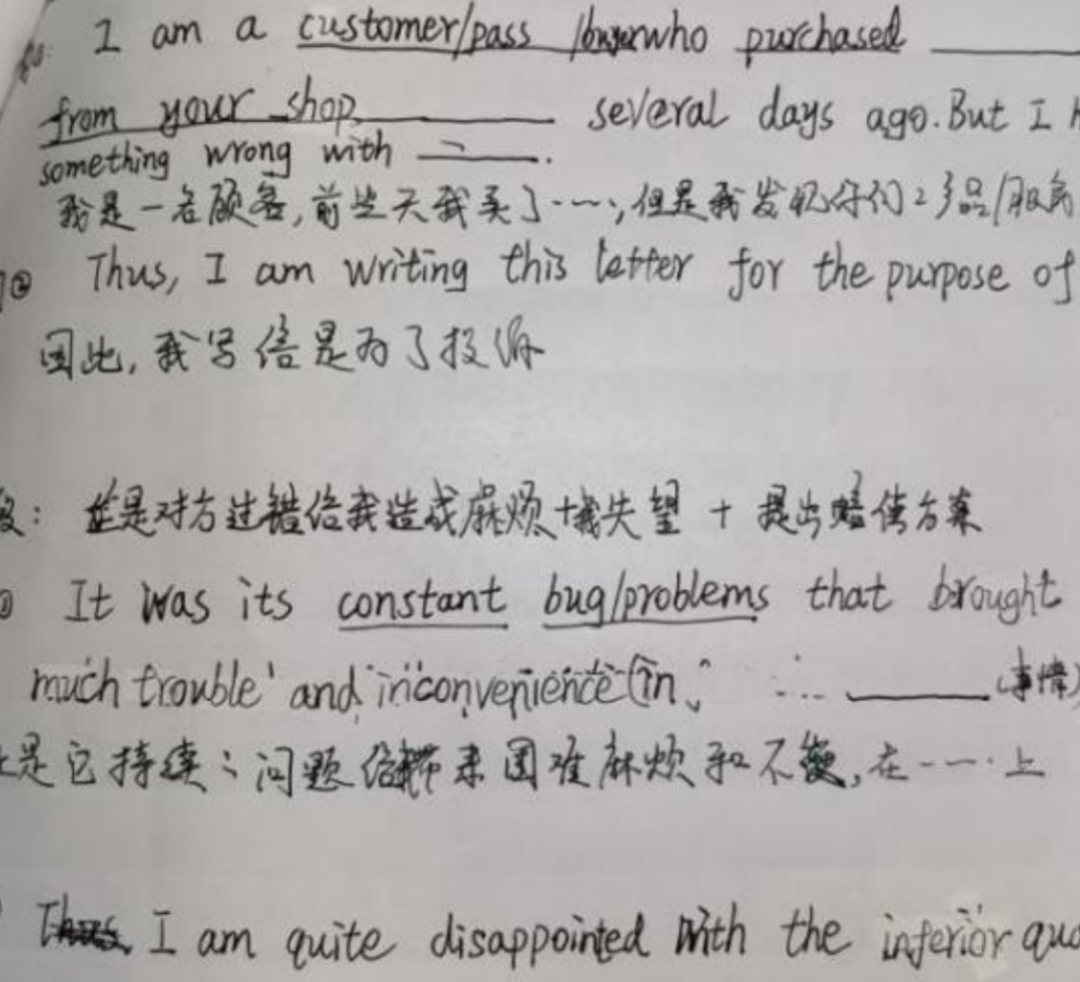 I am a customer/pass /buyer who purchased ______
from your shop ______ several days ago. But I
something wrong with ______.
我是一名顾客,前些天我买了……,但是我发现你们
Thus, I am writing this letter for the purpose of
② 因此,我写信是为了投诉
：是对方过错给我造成麻烦+我失望 + 提出赔偿方案
It was its constant bug/problems that brought
much trouble and inconvenience (in ... ______ (事情)
是它持续 问题给我带来困难麻烦和不便,在……上
I am quite disappointed with the inferior